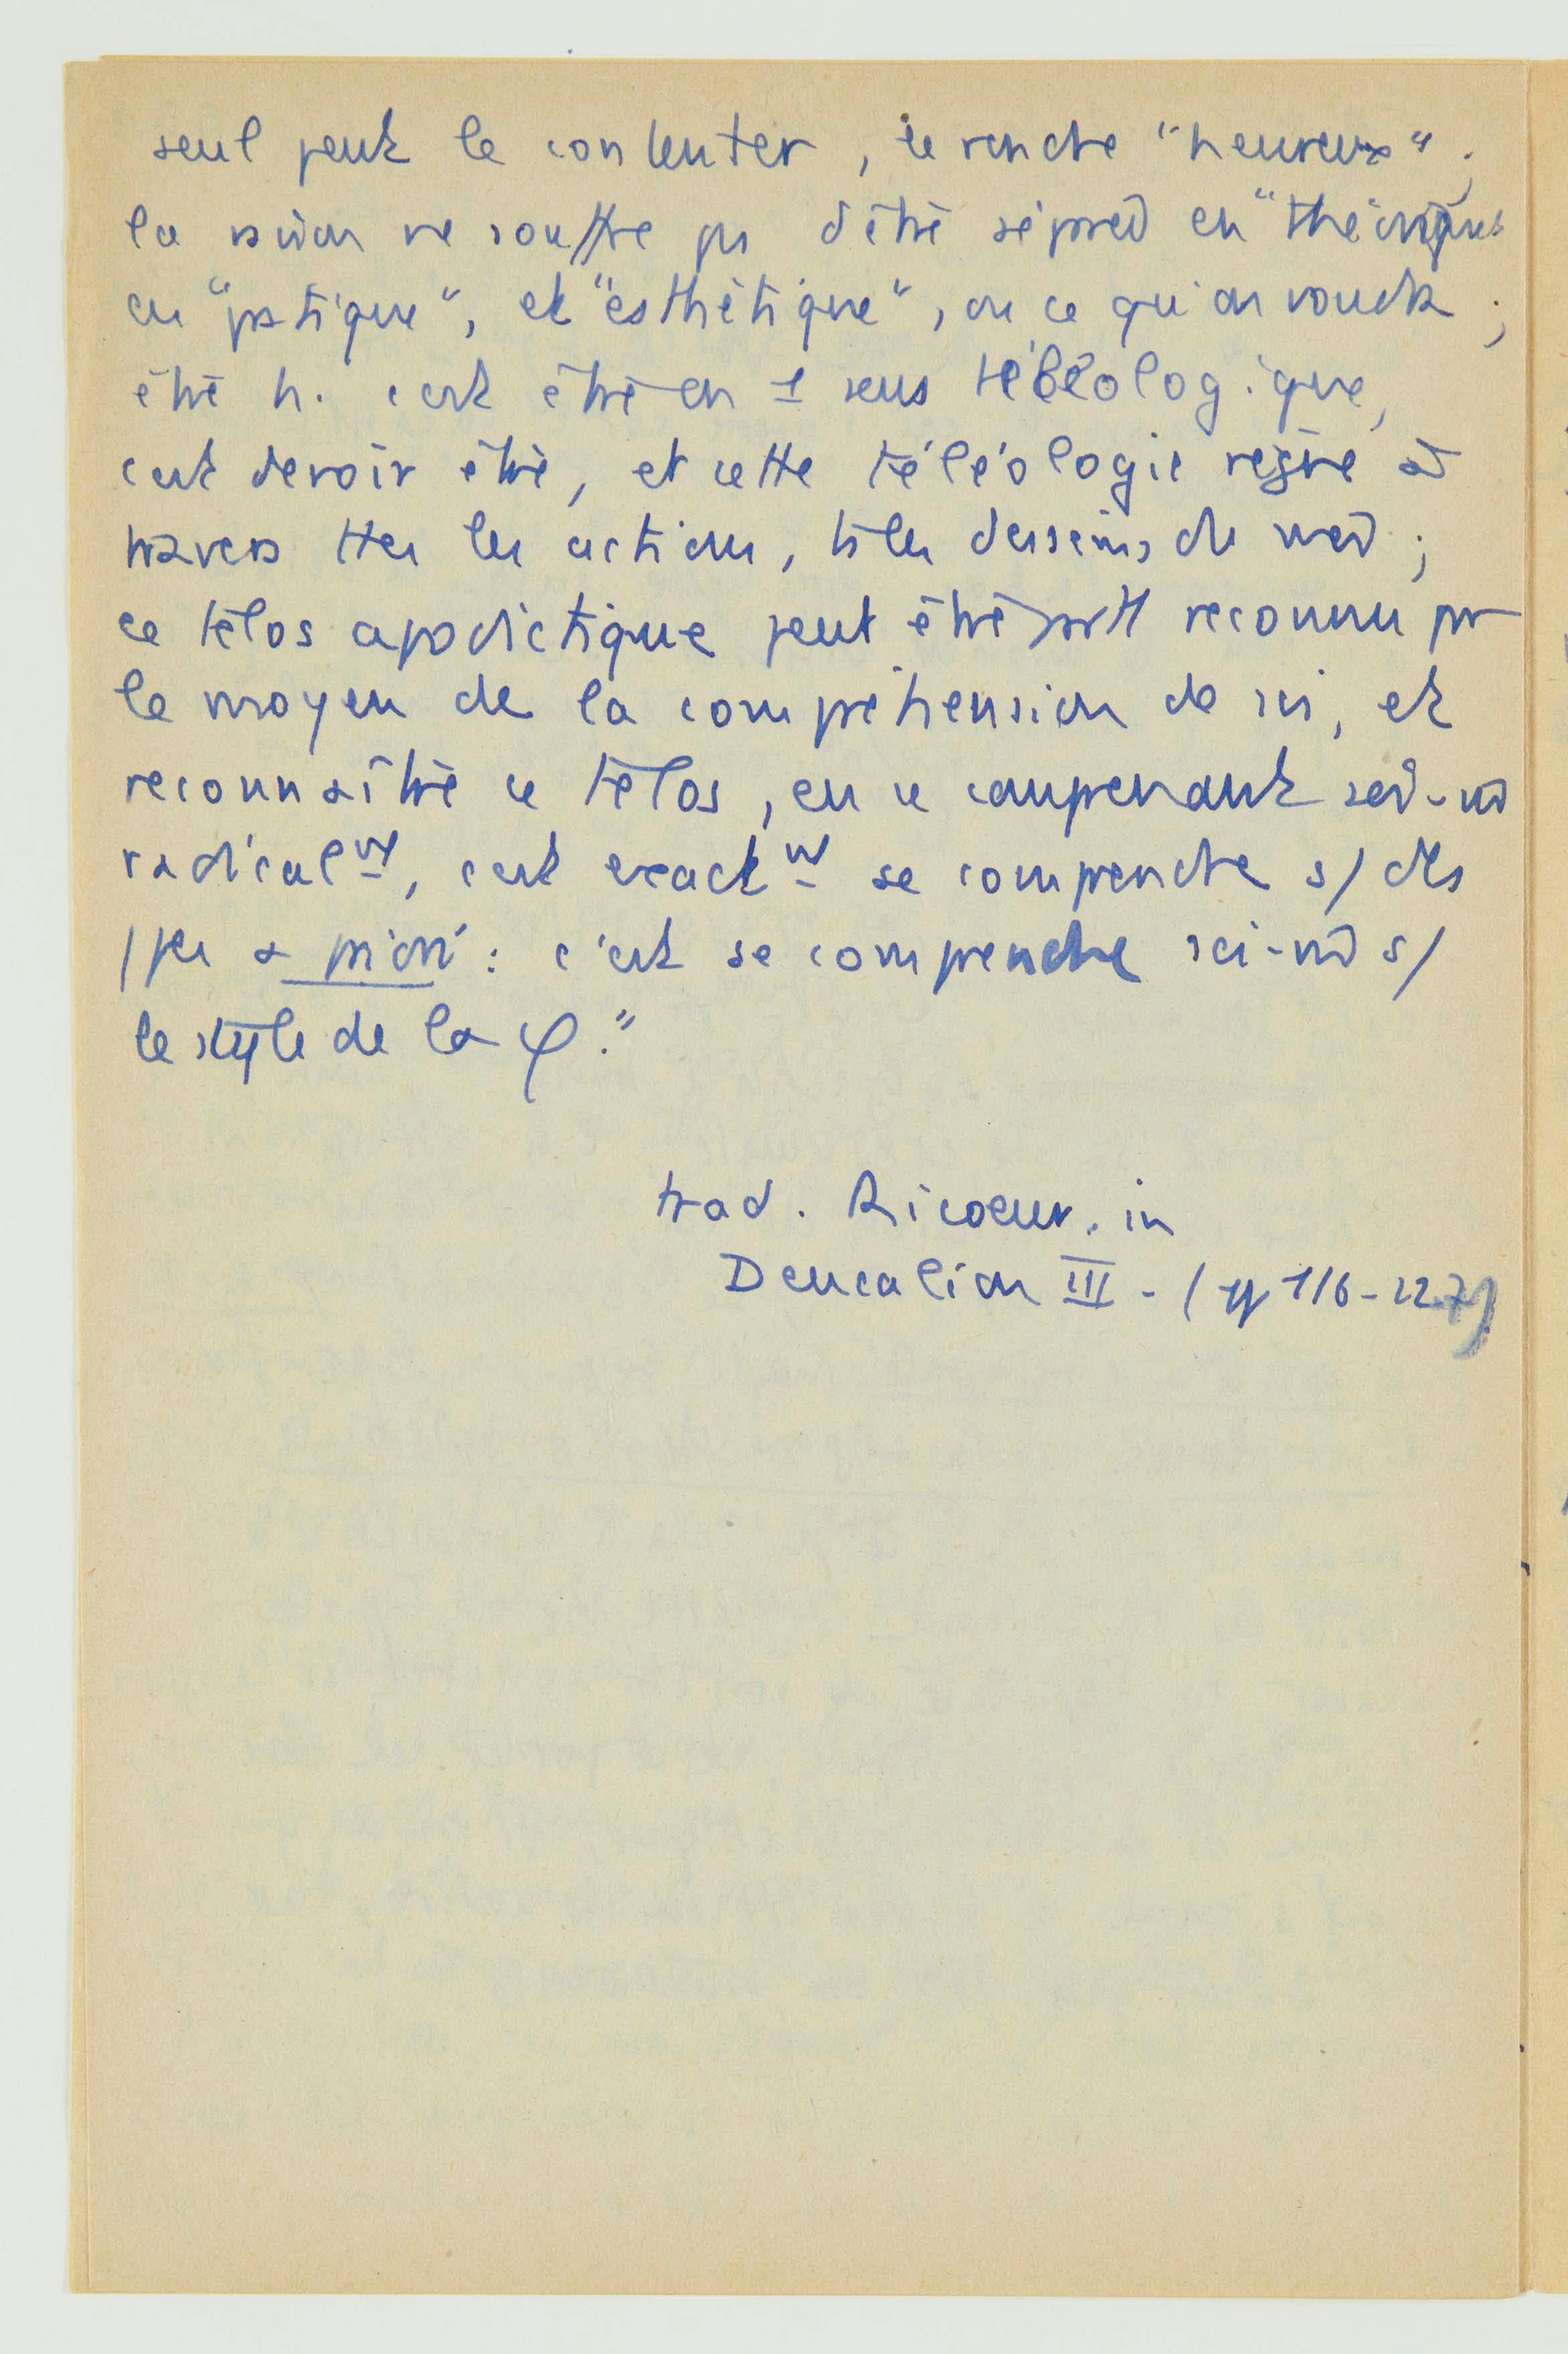 seul peut le contenter, le rendre "heureux" ;
la raison ne souffre pas d'être séparée en "théorique"
en "pratique", et "esthétique", ou ce qu'on voudra ;
être h. c'est être en 1 sens téléologique,
c'est devoir être, et cette téléologie règne à
travers ttes les actions, ts les desseins du moi ;
ce télos apodictique peut être reconnu par
le moyen de la compréhension de soi, et
reconnaître ce télos, en se comprenant soi-m̂
radicalᵗ, c'est exactᵗ se comprendre s/ des
/pes a priori : c'est se comprendre soi-m̂ s/
le style de la φ."
trad. Ricoeur. in
Deucalion III - (pp 116-127)